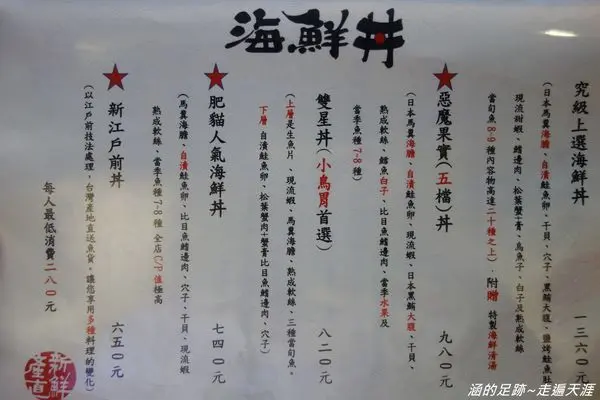 海鮮丼
究級上選海鮮丼 一三六○元
(日本馬糞海膽、自漬鮭魚卵、干貝、穴子、黑鮪大腹、鹽烤鮭魚肚
現流甜蝦、鰭邊肉、松葉蟹+膏、烏魚子、白子及熟成軟絲
當旬魚8-9種內容物高達二十種之上)．附贈 特製海鮮清湯
惡魔果實(五檔)丼 九八○元
(日本馬糞海膽、自漬鮭魚卵、現流蝦、日本黑鮪大腹、干貝、
熟成軟絲、鱈魚白子、比目魚鰭邊肉、當季水果及
當季魚種7-8種)
雙星丼(小鳥胃首選) 八二○元
(上層是生魚片、現流蝦、馬糞海膽、熟成軟絲、三種當旬魚。
下層 自漬鮭魚卵、松葉蟹肉+蟹膏比目魚鰭邊肉、穴子)
肥貓人氣海鮮丼 七四○元
(馬糞海膽、自漬鮭魚卵、比目魚鰭邊肉、穴子、干貝、現流蝦
熟成軟絲、當季魚種7-8種 全店C/P值極高
新江戶前丼 六五○元
(以江戶前技法處理，台灣產地直送魚貨，讓您享用多種料理的變化)
每人最低消費二八○元
新鮮
產直
涵的足跡~走遍天涯